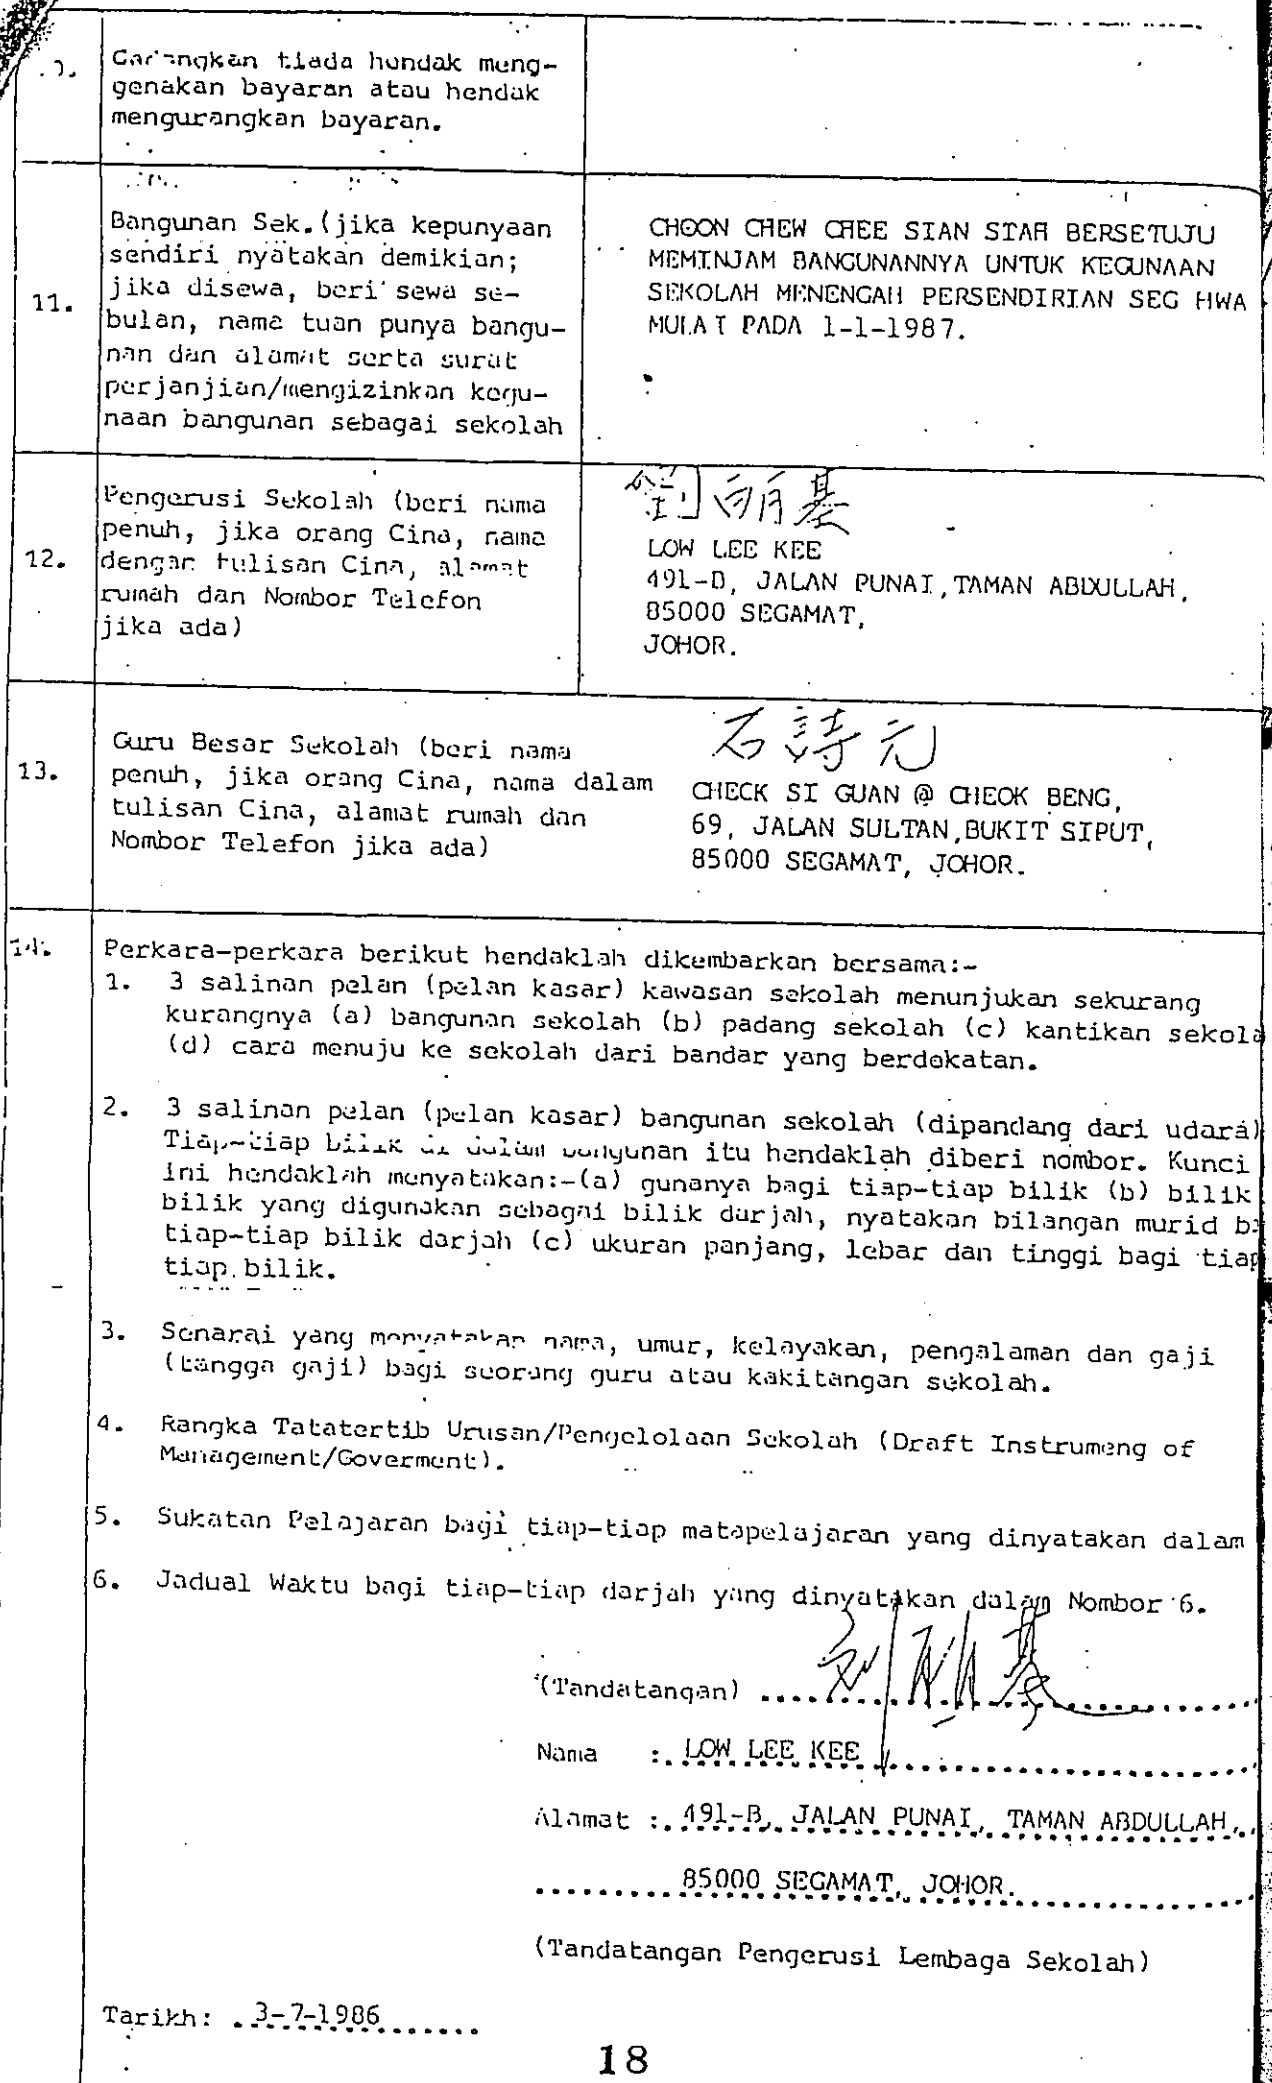 tiada hendak meng-
genakan bayaran atau hendak
mengurangkan bayaran.
11.
Bangunan Sek.(jika kepunyaan
sendiri nyatakan demikian;
jika disewa, beri sewa se-
bulan, nama tuan punya bangu-
nan dan alamat serta surat
perjanjian/mengizinkan kegu-
naan bangunan sebagai sekolah
CHOON CHEW CHEE SIAN SIAH BERSETUJU
MEMINJAM BANGUNANNYA UNTUK KEGUNAAN
SEKOLAH MENENGAH PERSENDIRIAN SEG HWA
MULAI PADA 1-1-1987.
12.
Pengerusi Sekolah (beri nama
penuh, jika orang Cina, nama
dengan tulisan Cina, alamat
rumah dan Nombor Telefon
jika ada)
LOW LEE KEE
491-B, JALAN PUNAI, TAMAN ABDULLAH,
85000 SEGAMAT,
JOHOR.
13.
Guru Besar Sekolah (beri nama
penuh, jika orang Cina, nama dalam
tulisan Cina, alamat rumah dan
Nombor Telefon jika ada)
石詩元
CHECK SI GUAN @ CHEOK BENG,
69, JALAN SULTAN, BUKIT SIPUT,
85000 SEGAMAT, JOHOR.
14.
Perkara-perkara berikut hendaklah dikembarkan bersama:-
1. 3 salinan pelan (pelan kasar) kawasan sekolah menunjukan sekurang
kurangnya (a) bangunan sekolah (b) padang sekolah (c) kantikan sekola
(d) cara menuju ke sekolah dari bandar yang berdekatan.
2. 3 salinan pelan (pelan kasar) bangunan sekolah (dipandang dari udara)
Tiap-tiap bilik di dalam bangunan itu hendaklah diberi nombor. Kunci
ini hendaklah menyatakan:-(a) gunanya bagi tiap-tiap bilik (b) bilik
bilik yang digunakan sebagai bilik darjah, nyatakan bilangan murid
tiap-tiap bilik darjah (c) ukuran panjang, lebar dan tinggi bagi tiap
tiap bilik.
3. Senarai yang menyatakan nama, umur, kelayakan, pengalaman dan gaji
(tangga gaji) bagi seorang guru atau kakitangan sekolah.
4. Rangka Tatatertib Urusan/Pengelolaan Sekolah (Draft Instrumeng of
Management/Goverment).
5. Sukatan Pelajaran bagi tiap-tiap matapelajaran yang dinyatakan dalam
6. Jadual Waktu bagi tiap-tiap darjah yang dinyatakan dalam Nombor 6.
(Tandatangan)
Nama : LOW LEE KEE
Alamat : 491-B, JALAN PUNAI, TAMAN ABDULLAH,
85000 SEGAMAT, JOHOR.
(Tandatangan Pengerusi Lembaga Sekolah)
Tarikh: 3-7-1986
18